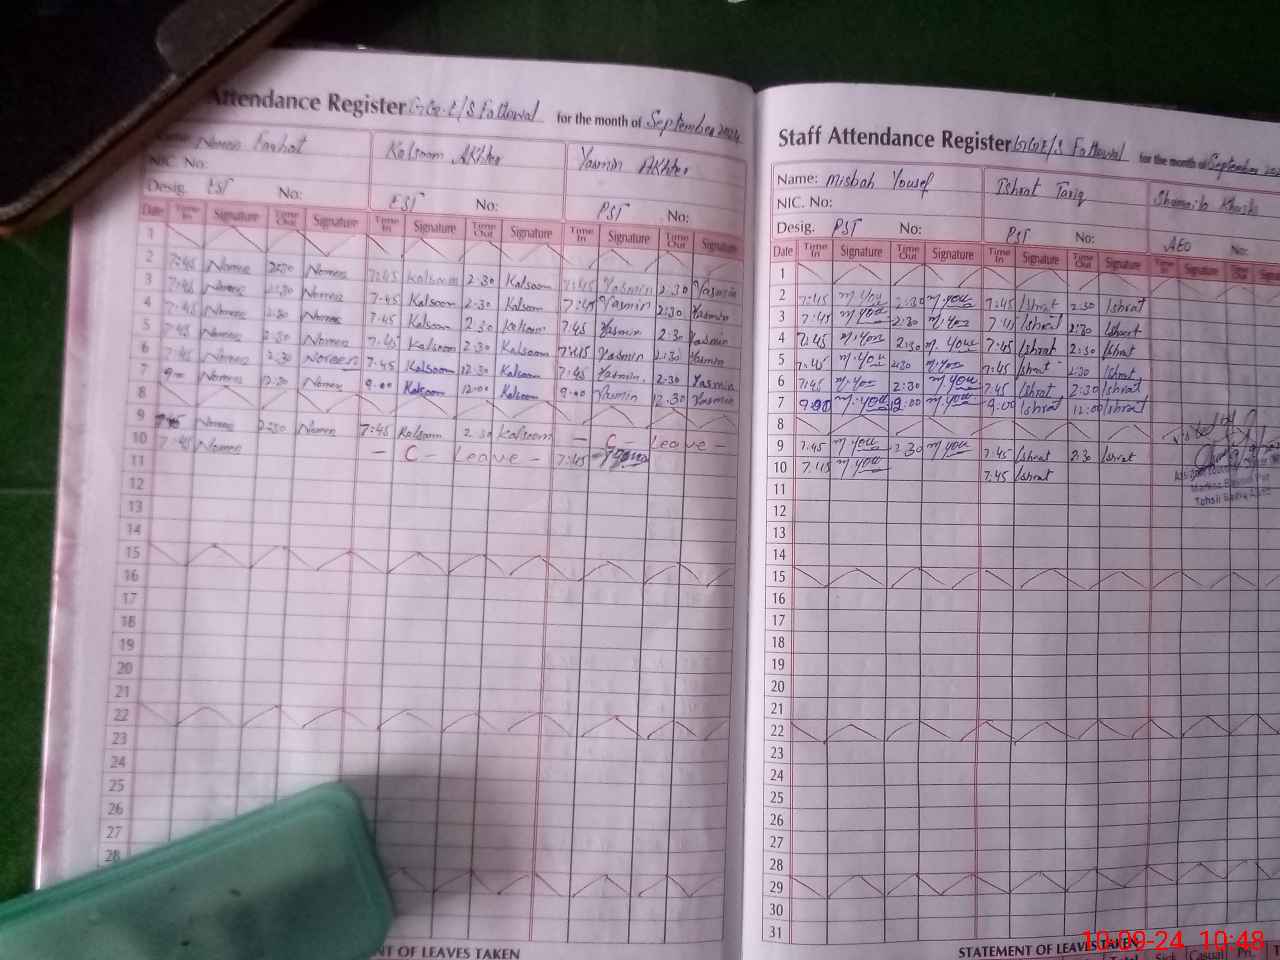 Attendance Register GGE/S Fattowal for the month of September 2024
Noreen Farhat Kalsoom Akhter Yasmin Akhter
NIC. No:
Desig. EST No: EST No: PST No:
Date Time In Signature Time Out Signature Time In Signature Time Out Signature Time In Signature Time Out Signature
1
2 7:45 Noreen 2:30 Noreen 7:45 Kalsoom 2:30 Kalsoom 7:45 Yasmin 2:30 Yasmin
3 7:45 Noreen 2:30 Noreen 7:45 Kalsoom 2:30 Kalsoom 7:45 Yasmin 2:30 Yasmin
4 7:45 Noreen 2:30 Noreen 7:45 Kalsoom 2:30 Kalsoom 7:45 Yasmin 2:30 Yasmin
5 7:45 Noreen 2:30 Noreen 7:45 Kalsoom 2:30 Kalsoom 7:45 Yasmin 2:30 Yasmin
6 7:45 Noreen 2:30 Noreen 7:45 Kalsoom 12:30 Kalsoom 7:45 Yasmin 2:30 Yasmin
7 9:00 Noreen 12:30 Noreen 9:00 Kalsoom 12:00 Kalsoom 9:00 Yasmin 12:30 Yasmin
8
9 7:45 Noreen 2:30 Noreen 7:45 Kalsoom 2:30 Kalsoom - C - Leave -
10 7:45 Noreen - C - Leave - 7:45
11
12
13
14
15
16
17
18
19
20
21
22
23
24
25
26
27
28
STATEMENT OF LEAVES TAKEN
Staff Attendance Register GGE/S Fattowal for the month of September
Name: Misbah Yousef Ishrat Tariq
NIC. No:
Desig. PST No: PST No: AEO No:
Date Time In Signature Time Out Signature Time In Signature Time Out Signature Time In Signature Time Out Signature
1
2 7:45 M.You 2:30 M.You 7:45 Ishrat 2:30 Ishrat
3 7:45 M.You 2:30 M.You 7:45 Ishrat 2:30 Ishrat
4 7:45 M.You 2:30 M.You 7:45 Ishrat 2:30 Ishrat
5 7:45 M.You 2:30 M.You 7:45 Ishrat 2:30 Ishrat
6 7:45 M.You 2:30 M.You 7:45 Ishrat 2:30 Ishrat
7 9:00 M.You 12:00 M.You 9:00 Ishrat 12:00 Ishrat
8
9 7:45 M.You 2:30 M.You 7:45 Ishrat 2:30 Ishrat
10 7:45 M.You 7:45 Ishrat
11
12
13
14
15
16
17
18
19
20
21
22
23
24
25
26
27
28
29
30
31
STATEMENT OF LEAVES TAKEN
10-09-24 10:48